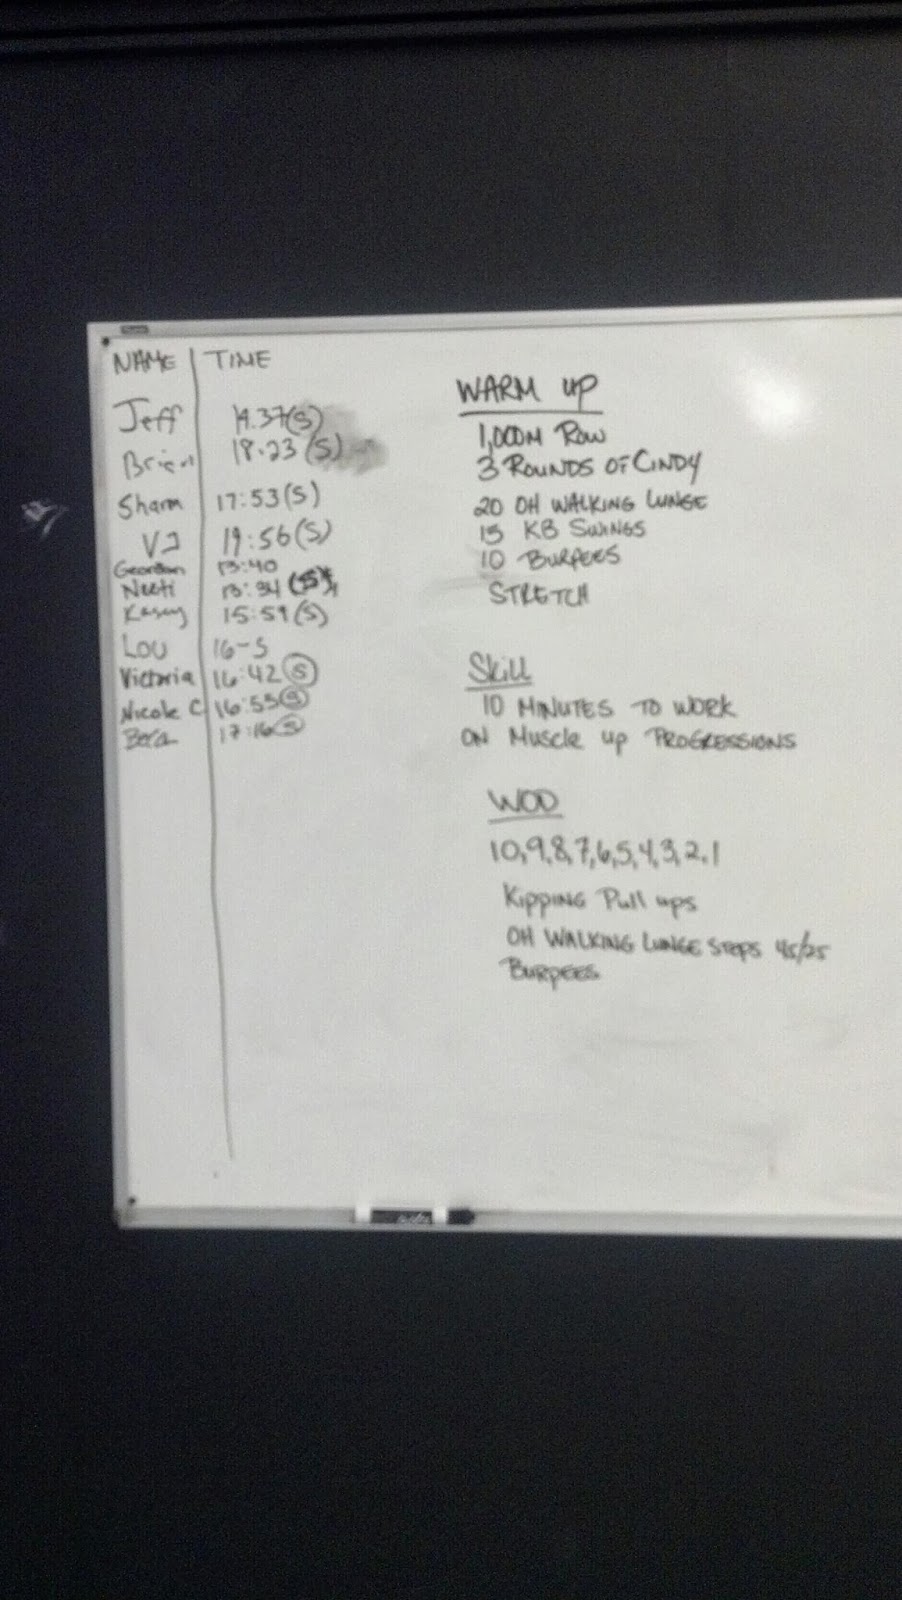 NAME | TIME
Jeff 19.37(S)
Brian 18.23 (S)
Sharm 17:53(S)
VJ 19:56(S)
13:40
Neeti 13:34 (S)
Kasey 15:59(S)
Lou 16-S
Victoria 16:42 (S)
Nicole C 16:55 (S)
17:16 (S)
WARM UP
1,000M ROW
3 ROUNDS OF CINDY
20 OH WALKING LUNGE
15 KB SWINGS
10 BURPEES
STRETCH
Skill
10 MINUTES TO WORK
ON Muscle up PROGRESSIONS
WOD
10,9,8,7,6,5,4,3,2,1
Kipping Pull ups
OH WALKING LUNGE STEPS 45/25
BURPEES